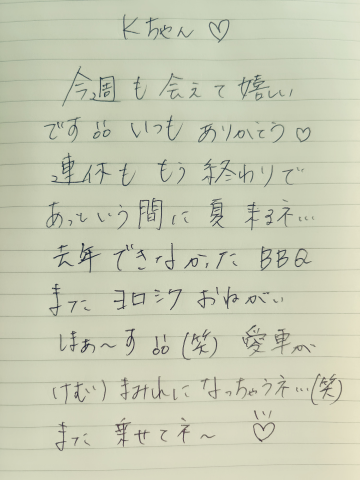 Kちゃん♡
今週も会えて嬉しい
です いつもありがとう♡
連休ももう終わりで
あっという間に夏来るネ…
去年できなかったBBQ
またヨロシクおねがい
しまぁ〜す (笑) 愛車が
けむりまみれになっちゃうネ…(笑)
また乗せてネ〜 ♡